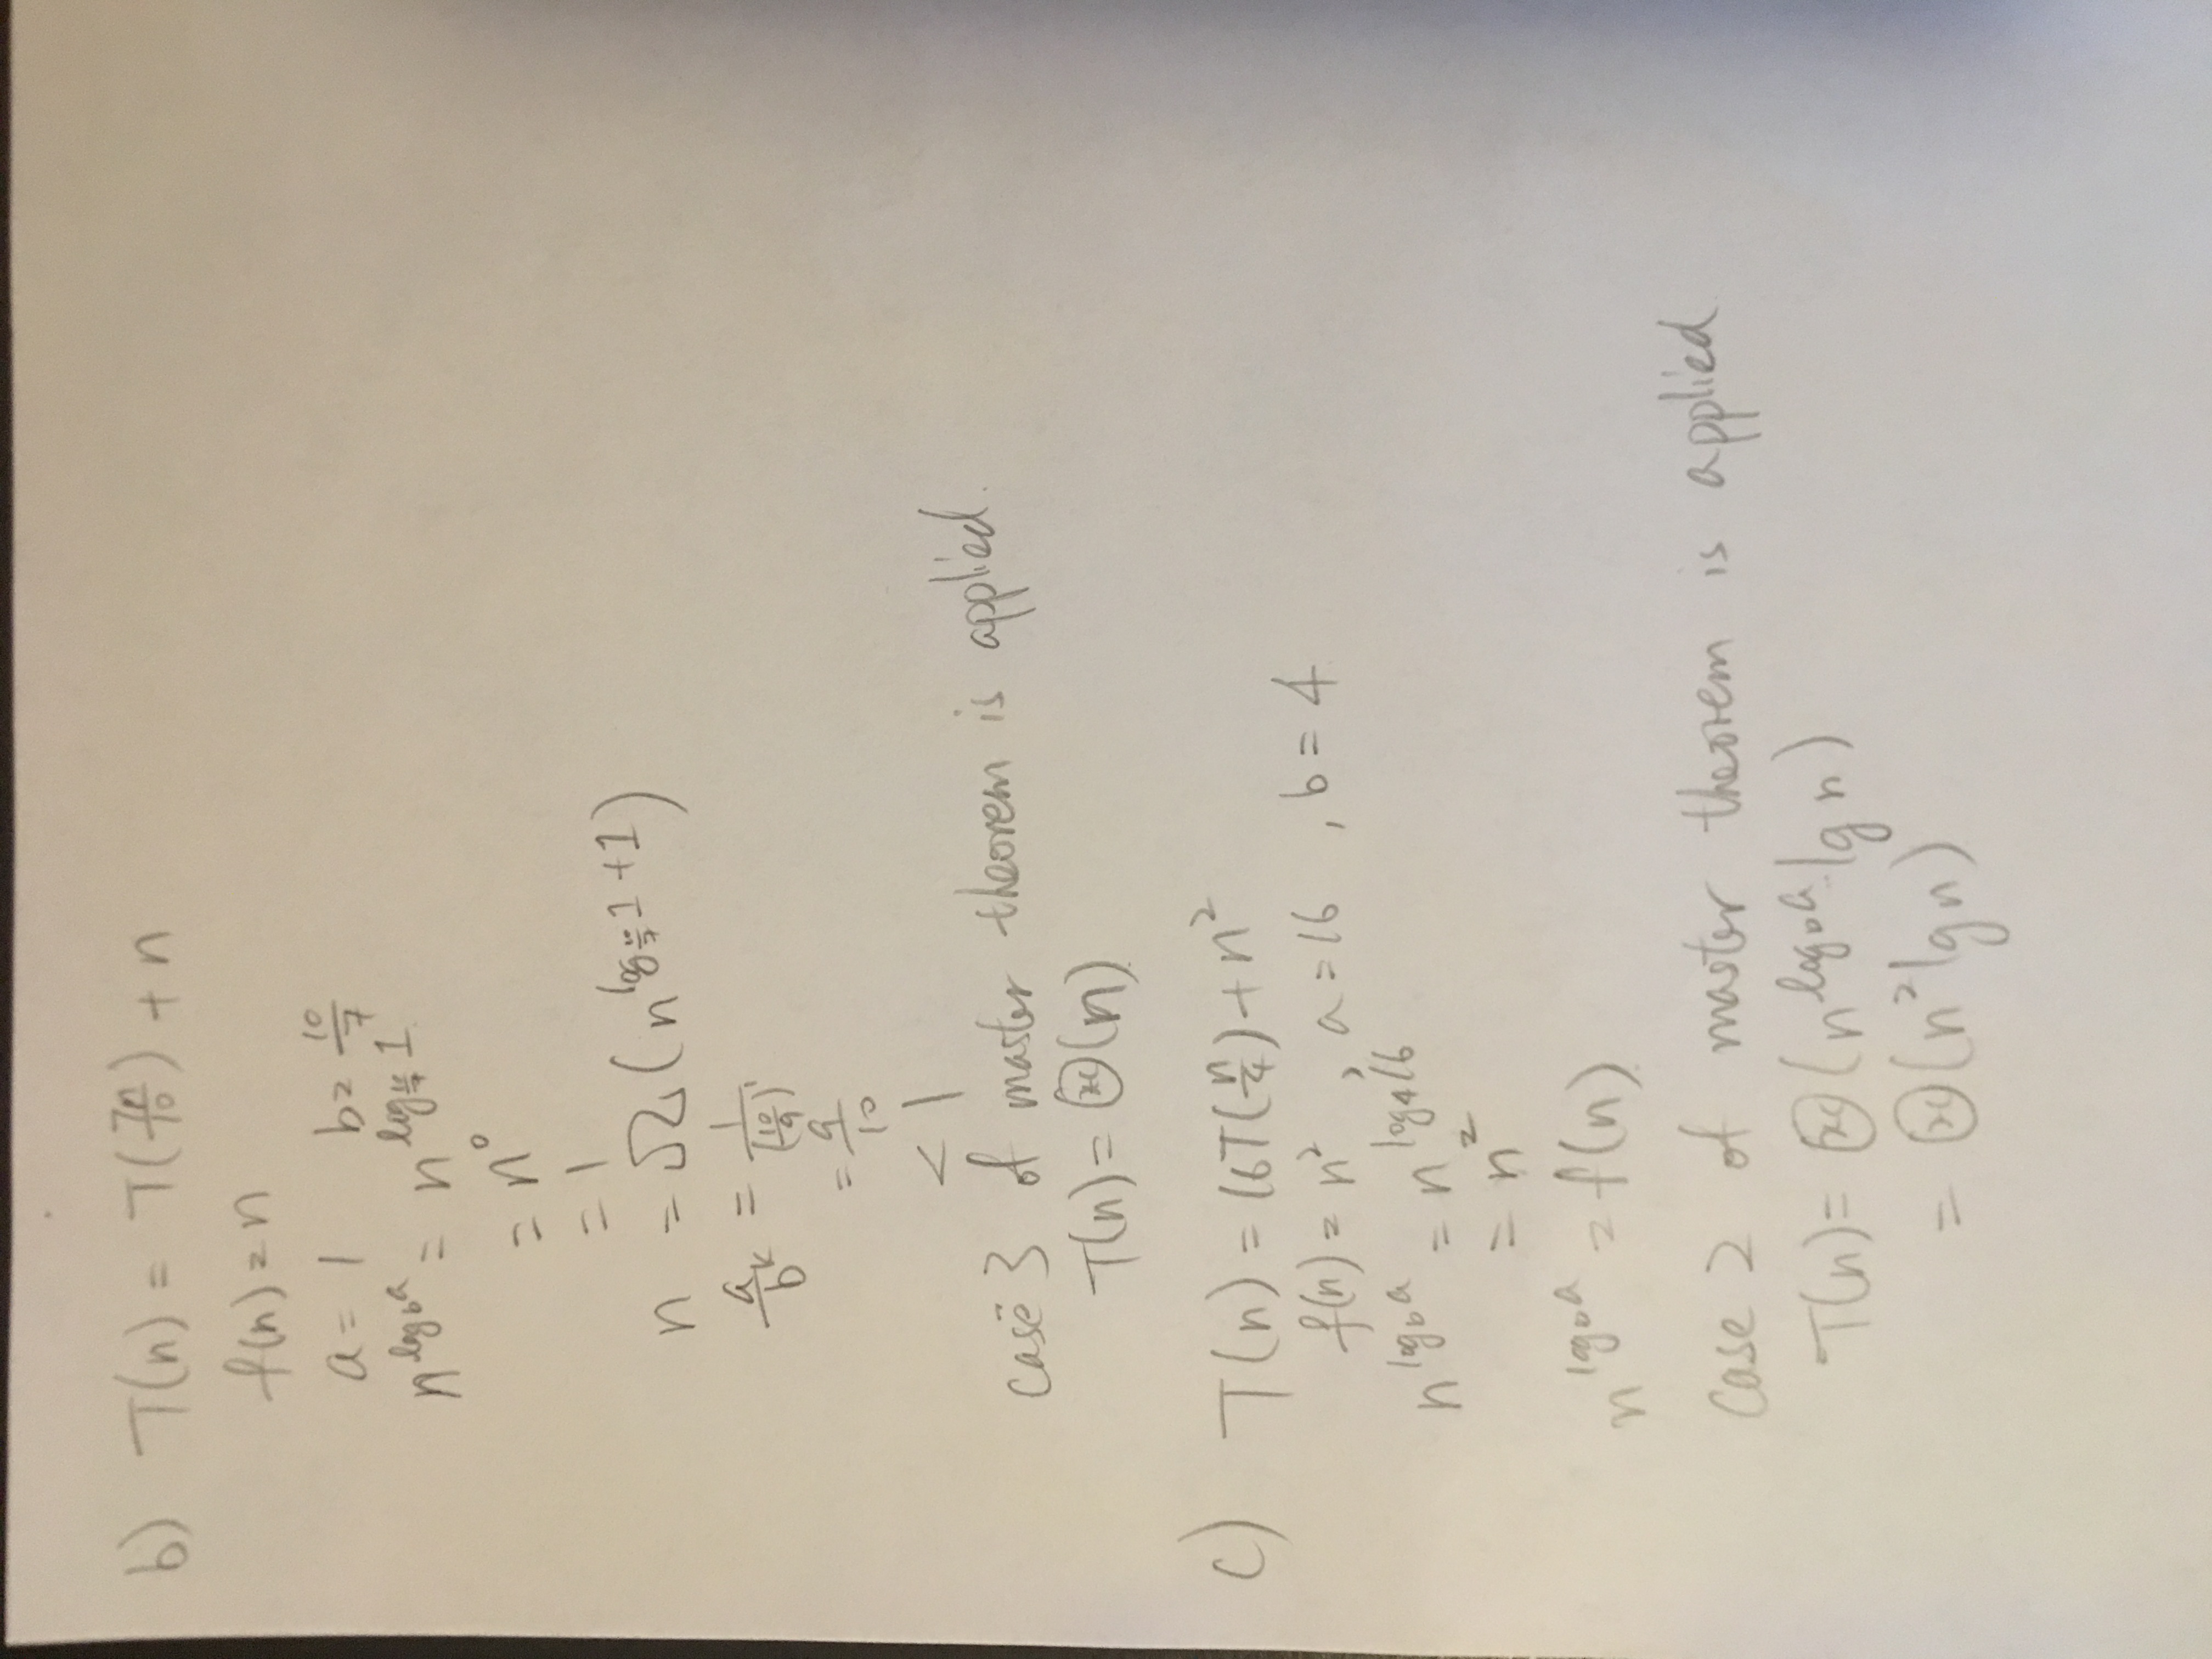 b) T(n) = T(7n/10) + n
f(n) = n
a = 1 b = 10/7
n^log_b a = n^log_10/7 1
= n^0
= 1
n = Ω(n^log_10/7 1 + 1)
a/b^k = 1/(10/9)^1
= 9/10
< 1
case 3 of master theorem is applied.
T(n) = Θ(n)
c) T(n) = 16T(n/4) + n^2
f(n) = n^2 , a = 16 , b = 4
n^log_b a = n^log_4 16
= n^2
n^log_b a = f(n)
Case 2 of master theorem is applied
T(n) = Θ(n^log_b a lg n)
= Θ(n^2 lg n)